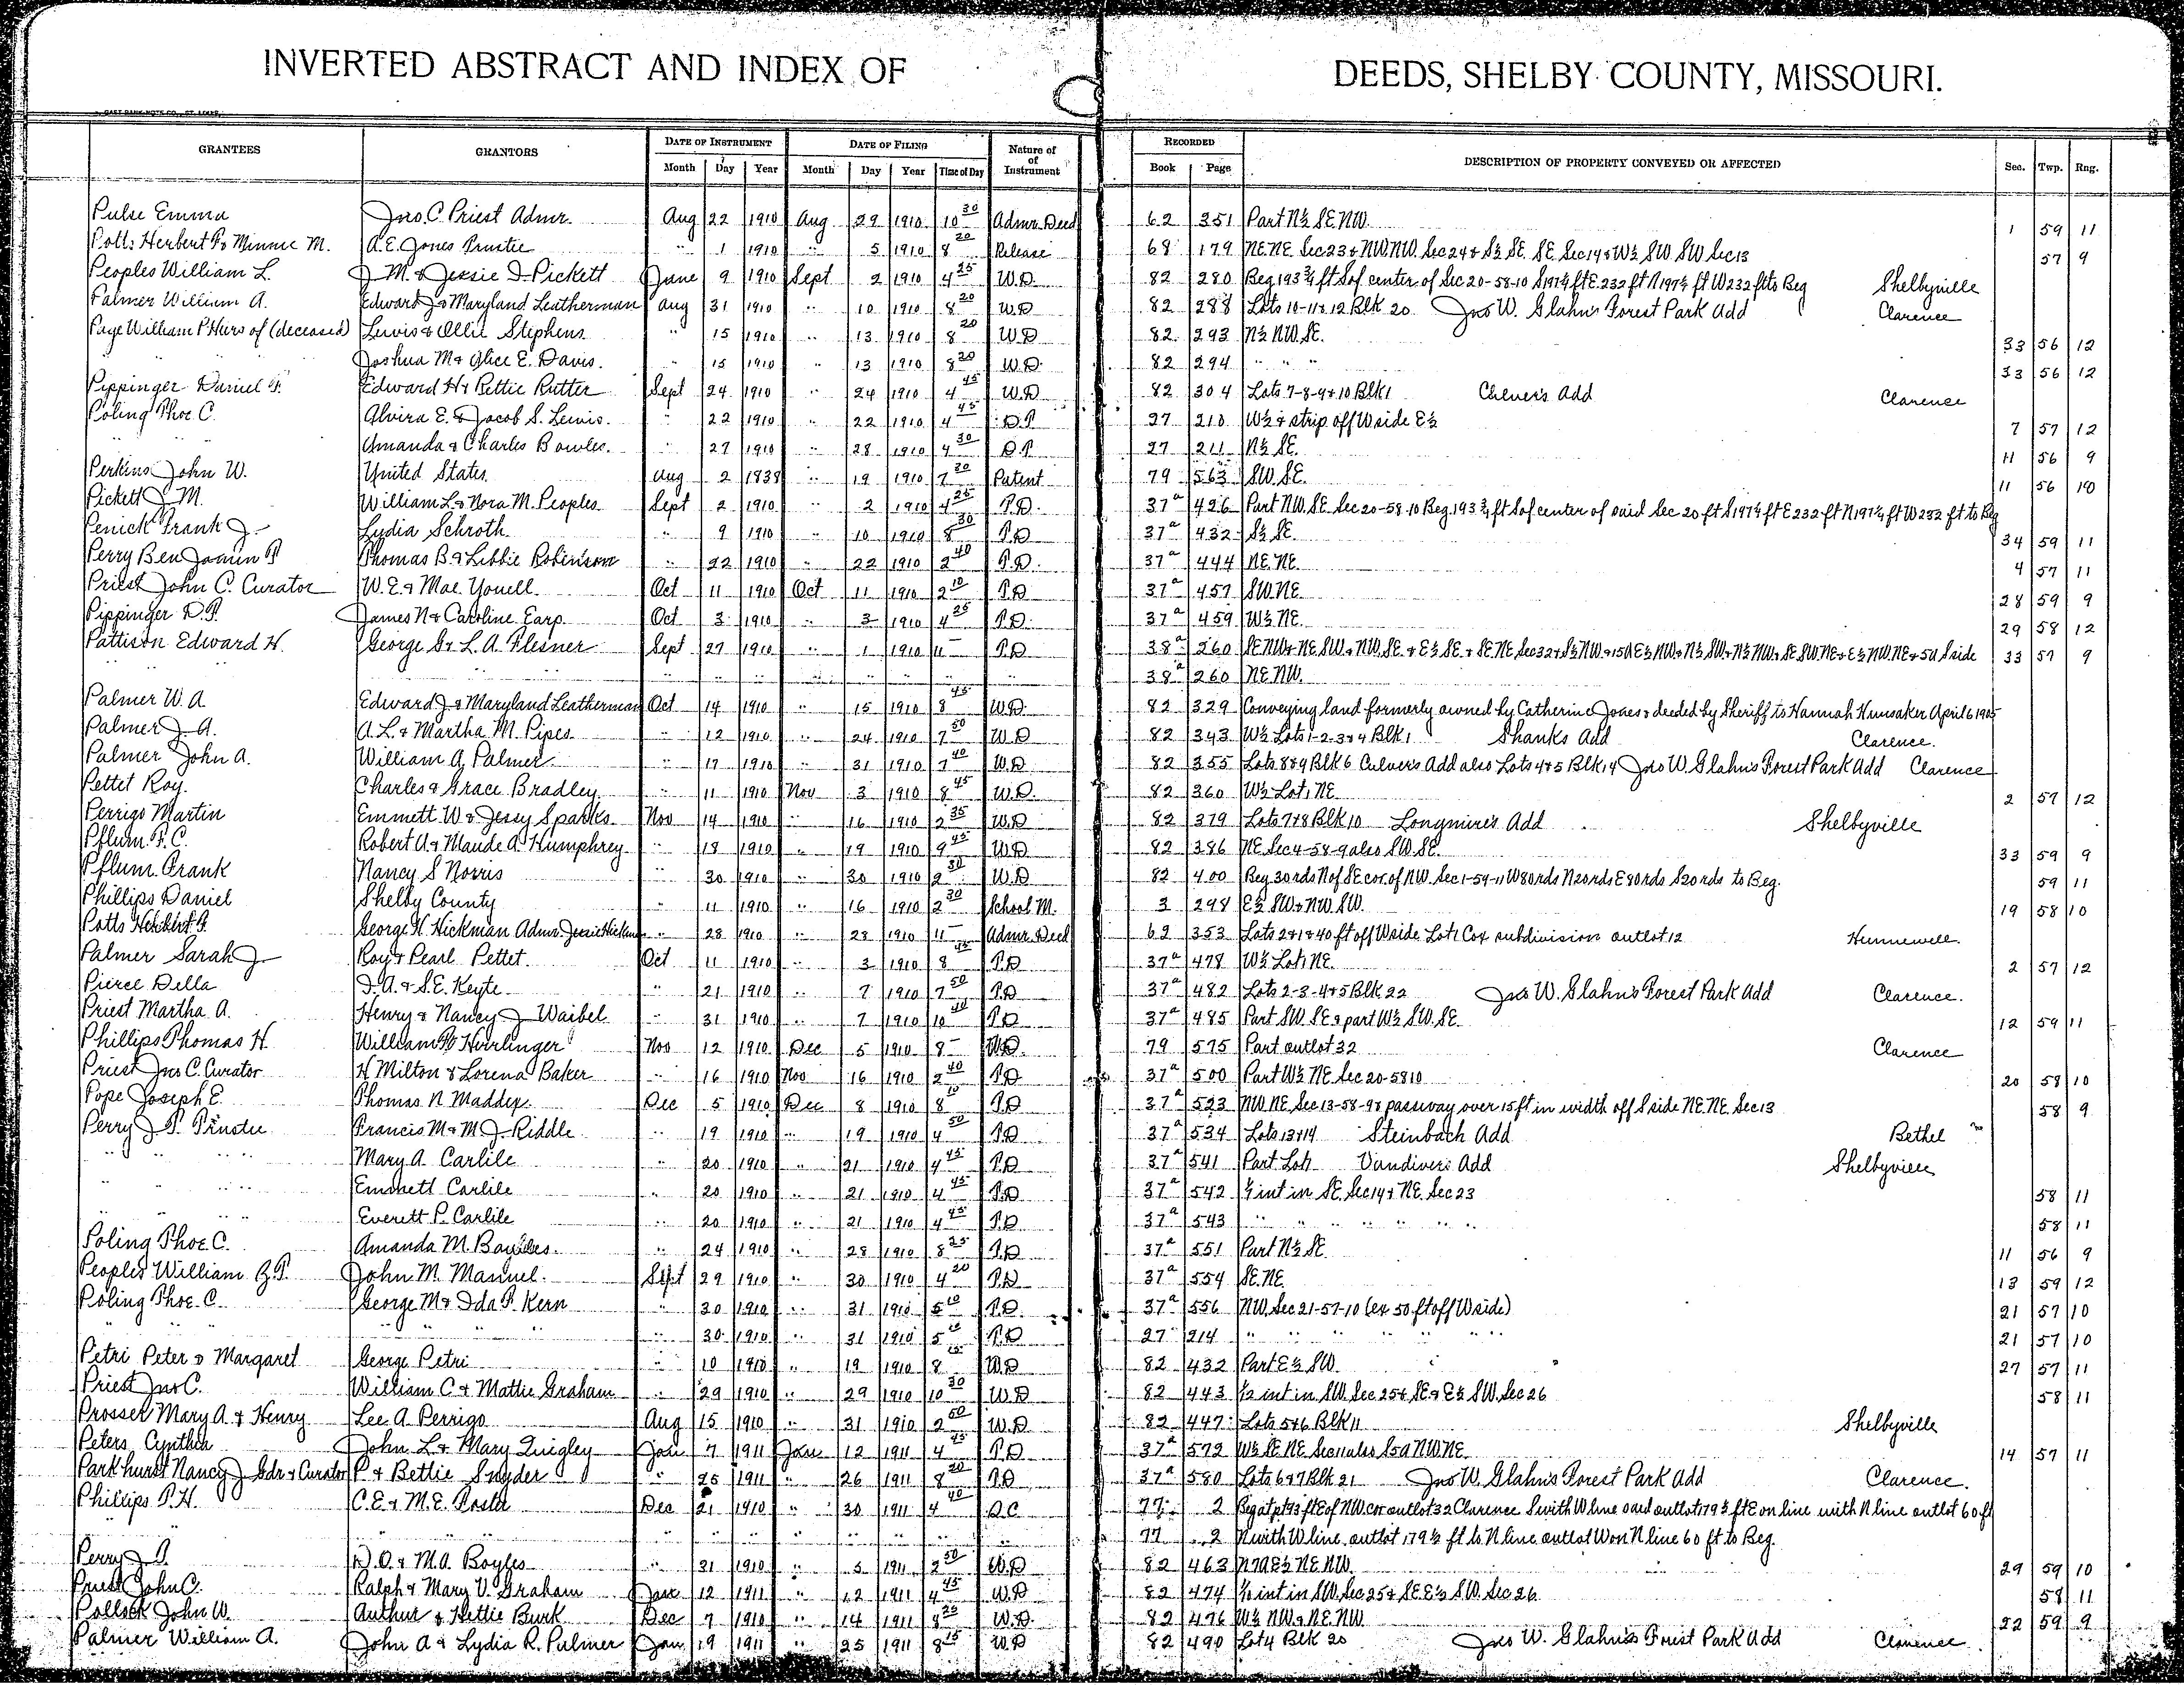 INVERTED ABSTRACT AND INDEX OF DEEDS, SHELBY COUNTY, MISSOURI.
GRANTEES GRANTORS DATE OF INSTRUMENT DATE OF FILING Nature of of Instrument RECORDED DESCRIPTION OF PROPERTY CONVEYED OR AFFECTED Sec. Twp. Rng.
Month Day Year Month Day Year Time of Day Book Page
Pulse Emma Jno. C. Priest Admr. Aug 22 1910 Aug 29 1910 10 30 Admr. Deed 62 351 Part N½ SE NW 1 59 11
Potts Herbert P & Minnie M. A. E. Jones Trustee " 1 1910 " 5 1910 8 20 Release 68 179 NE NE Sec 23 & NW NW Sec 24 & S½ SE SE Sec 14 & W½ SW SW Sec 13 57 9
Peoples William L. J. M. & Jessie I. Pickett June 9 1910 Sept 2 1910 4 25 W.D. 82 280 Beg 193¾ ft S of center of Sec 20-58-10 S 197½ ft E 232 ft N 197½ ft W 232 ft to Beg Shelbyville
Palmer William A. Edward J. & Maryland Leatherman Aug 31 1910 " 10 1910 8 20 W.D 82 288 Lots 10-11 & 12 Blk 20 Jno W. Glahn's Forest Park Add Clarence
Page William P Heirs of (deceased) Lewis & Ollie Stephens " 15 1910 " 13 1910 8 20 W.D 82 293 N½ NW SE. 33 56 12
Joshua M & Alice E. Davis. " 15 1910 " 13 1910 8 20 W.D. 82 294 " " " 33 56 12
Pippinger Daniel F. Edward H & Bettie Rutter Sept 24 1910 " 24 1910 4 45 W.D 82 304 Lots 7-8-9 & 10 Blk 1 Culver's Add Clarence
Poling Thos C. Alvira E. & Jacob S. Lewis. " 22 1910 " 22 1910 4 45 D.T 27 210 W½ & strip off W side E½ 7 57 12
" " Amanda & Charles Bowles. " 27 1910 " 28 1910 4 30 D.T 27 211 N½ SE. 11 56 9
Perkins John W. United States Aug 2 1838 " 19 1910 7 20 Patent 79 563 SW SE. 11 56 10
Pickett J. M. William L. & Nora M. Peoples Sept 2 1910 " 2 1910 4 25 T.D. 37a 426 Part NW SE Sec 20-58-10 Beg. 193¾ ft S of center of said Sec 20 ft S 197½ ft E 232 ft N 197½ ft W 232 ft to Beg
Penick Frank J. Lydia Schroth " 9 1910 " 10 1910 8 30 T.D 37a 432 S½ SE. 34 59 11
Perry Benjamin P Thomas B. & Libbie Robinson " 22 1910 " 22 1910 2 40 T.D. 37a 444 NE NE. 4 57 11
Priest John C. Curator W. E. & Mae Youell Oct 11 1910 Oct 11 1910 2 10 T.D 37a 457 SW NE 28 59 9
Pippinger D. F. James N & Caroline Earp Oct 3 1910 " 3 1910 4 25 T.D. 37a 459 W½ NE. 29 58 12
Pattison Edward H. George G & L. A. Flesner Sept 27 1910 " 1 1910 11 — T.D 38a 260 SE NW & NE SW & NW SE & E½ SE & SE NE Sec 32 & S½ NW & 15A E½ NW & N½ SW & N½ NW & SE SW NE & E½ NW NE & 5A S side 33 57 9
" " " " " " " " " " " 38a 260 NE NW.
Palmer W. A Edward J & Maryland Leatherman Oct 14 1910 " 15 1910 8 45 W.D. 82 329 Conveying land formerly owned by Catherine Jones & deeded by Sheriff to Hannah Hunsaker April 6 1905
Palmer J. A. A. L. & Martha M. Pipes " 12 1910 " 24 1910 7 50 W.D 82 343 W½ Lots 1-2-3 & 4 Blk 1 Shanks Add Clarence.
Palmer John A. William A. Palmer " 17 1910 " 31 1910 7 40 W.D 82 355 Lots 8 & 9 Blk 6 Culvers Add also Lots 4 & 5 Blk 14 Jno W. Glahn's Forest Park Add Clarence
Pettet Roy. Charles & Grace Bradley " 11 1910 Nov 3 1910 8 45 W.D. 82 360 W½ Lot 1 NE 2 57 12
Perrigo Martin Emmett W & Jessy Sparks Nov 14 1910 " 16 1910 2 35 W.D 82 379 Lots 7 & 8 Blk 10 Longmire's Add Shelbyville
Pflum F. C. Robert A & Maude A. Humphrey " 18 1910 " 19 1910 9 45 W.D 82 386 NE Sec 4-58-9 also SW SE. 33 59 9
Pflum Frank Nancy S Norris " 30 1910 " 30 1910 2 30 W.D 82 400 Beg 30 rds N of SE cor of NW Sec 1-59-11 W 80 rds N 20 rds E 80 rds S 20 rds to Beg. 59 11
Phillips Daniel Shelby County " 11 1910 " 16 1910 2 30 School M. 3 298 E½ SW & NW SW. 19 58 10
Potts Herbert P. George H. Hickman Admr Jessie Hickman " 28 1910 " 28 1910 11 — Admr Deed 62 353 Lots 2 & 1 & 40 ft off W side Lot 1 Cox subdivision outlot 12 Hunnewell.
Palmer Sarah J Roy & Pearl Pettet Oct 11 1910 " 3 1910 8 45 T.D 37a 478 W½ Lot 1 NE. 2 57 12
Pierce Della I. A. & S. E. Keyte " 21 1910 " 7 1910 7 50 T.D 37a 482 Lots 2-3-4 & 5 Blk 22 Jno W. Glahn's Forest Park Add Clarence.
Priest Martha A. Henry & Nancy J Waibel " 31 1910 " 7 1910 10 40 T.D 37a 485 Part SW SE & part W½ SW SE 12 59 11
Phillips Thomas H. William Hurlinger Nov 12 1910 Dec 5 1910 8 — W.D. 79 575 Part outlot 32 Clarence
Priest Jno C. Curator H Milton & Lorena Baker " 16 1910 Nov 16 1910 2 40 T.D 37a 500 Part W½ NE Sec 20-58 10 20 58 10
Pope Joseph E. Thomas N. Maddy Dec 5 1910 Dec 8 1910 8 10 T.D 37a 523 NW NE Sec 13-58-9 & passway over 15 ft in width off S side NE NE Sec 13 58 9
Perry J. P. Trustee Francis M & M. J. Riddle " 19 1910 " 19 1910 4 50 T.D 37a 534 Lots 13 & 14 Steinbach Add Bethel
" " " Mary A. Carlile " 20 1910 " 21 1910 4 45 T.D 37a 541 Part Lot 1 Vandivers Add Shelbyville
" " " Emmett Carlile " 20 1910 " 21 1910 4 45 T.D 37a 542 int in SE Sec 14 & NE Sec 23 58 11
" " " Everett P. Carlile " 20 1910 " 21 1910 4 45 T.D 37a 543 " " " " " 58 11
Poling Thos. C. Amanda M. " 24 1910 " 28 1910 8 25 T.D 37a 551 Part N½ SE 11 56 9
Peoples William G. P. John M. Manuel. Sept 29 1910 " 30 1910 4 20 T.D 37a 554 SE NE. 13 59 12
Poling Thos. C. George M & Ida P. Kern " 30 1910 " 31 1910 5 10 T.D. 37a 556 NW Sec 21-57-10 (ex 50 ft off W side) 21 57 10
" " " " " 30 1910 " 31 1910 5 10 T.D 27 214 " " " " " 21 57 10
Petri Peter & Margaret George Petri " 10 1910 " 19 1910 8 15 W.D 82 432 Part E½ SW. 27 57 11
Priest Jno C. William C & Mattie Graham " 29 1910 " 29 1910 10 30 W.D 82 443 ½ int in SW Sec 25 & SE & E½ SW Sec 26 58 11
Prosser Mary A. & Henry Lee A. Perrigo Aug 15 1910 " 31 1910 2 50 W.D 82 447 Lots 5 & 6 Blk 11 Shelbyville
Peters Cynthia John L. & Mary Quigley Jan 7 1911 Jan 12 1911 4 45 T.D 37a 572 W½ SE NE Sec 11 also S 5a NW NE 14 57 11
Parkhurst Nancy J Gdr & Curator P. & Bettie Snyder " 25 1911 " 26 1911 8 20 T.D 37a 580 Lots 6 & 7 Blk 21 Jno W. Glahn's Forest Park Add Clarence.
Phillips T. H. C. E. & M. E. Dec 21 1910 " 30 1911 4 40 Q.C 77 2 Beg at pt 93 ft E of NW cor outlot 32 Clarence S with W line said outlot 179½ ft E on line with N line outlot 60 ft
" " " " " " " " " " " 77 2 N with W line outlot 179½ ft to N line outlot W on N line 60 ft to Beg.
Perry J. P. D. O. & M. A. Boyles " 31 1910 " 5 1911 2 50 W.D 82 463 E½ NE NW. 29 59 10
Priest John C. Ralph & Mary V. Graham Jan 12 1911 " 12 1911 4 45 W.D 82 474 ½ int in SW Sec 25 & SE E½ SW Sec 26 58 11
Pollock John W. Arthur & Hettie Burk Dec 7 1910 " 14 1911 8 25 W.D. 82 476 W½ NW & NE NW 22 59 9
Palmer William A. John A & Lydia R. Palmer Jan 19 1911 " 25 1911 8 15 W.D 82 490 Lot 4 Blk 20 Jno W. Glahn's Forest Park Add Clarence